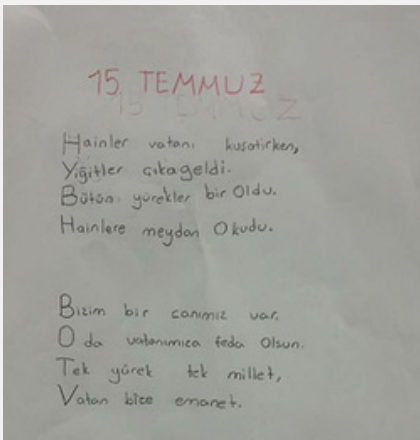 15 TEMMUZ
Hainler vatanı kuşatırken,
Yiğitler çıkageldi.
Bütün yürekler bir Oldu.
Hainlere meydan Okudu.
Bizim bir canımız var.
O da vatanımıza feda Olsun.
Tek yürek tek millet,
Vatan bize emanet.